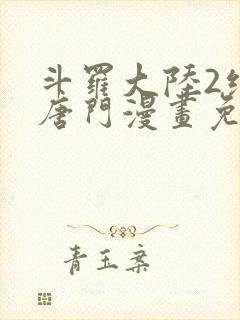 斗羅大陸2
唐門漫畫免
青玉案